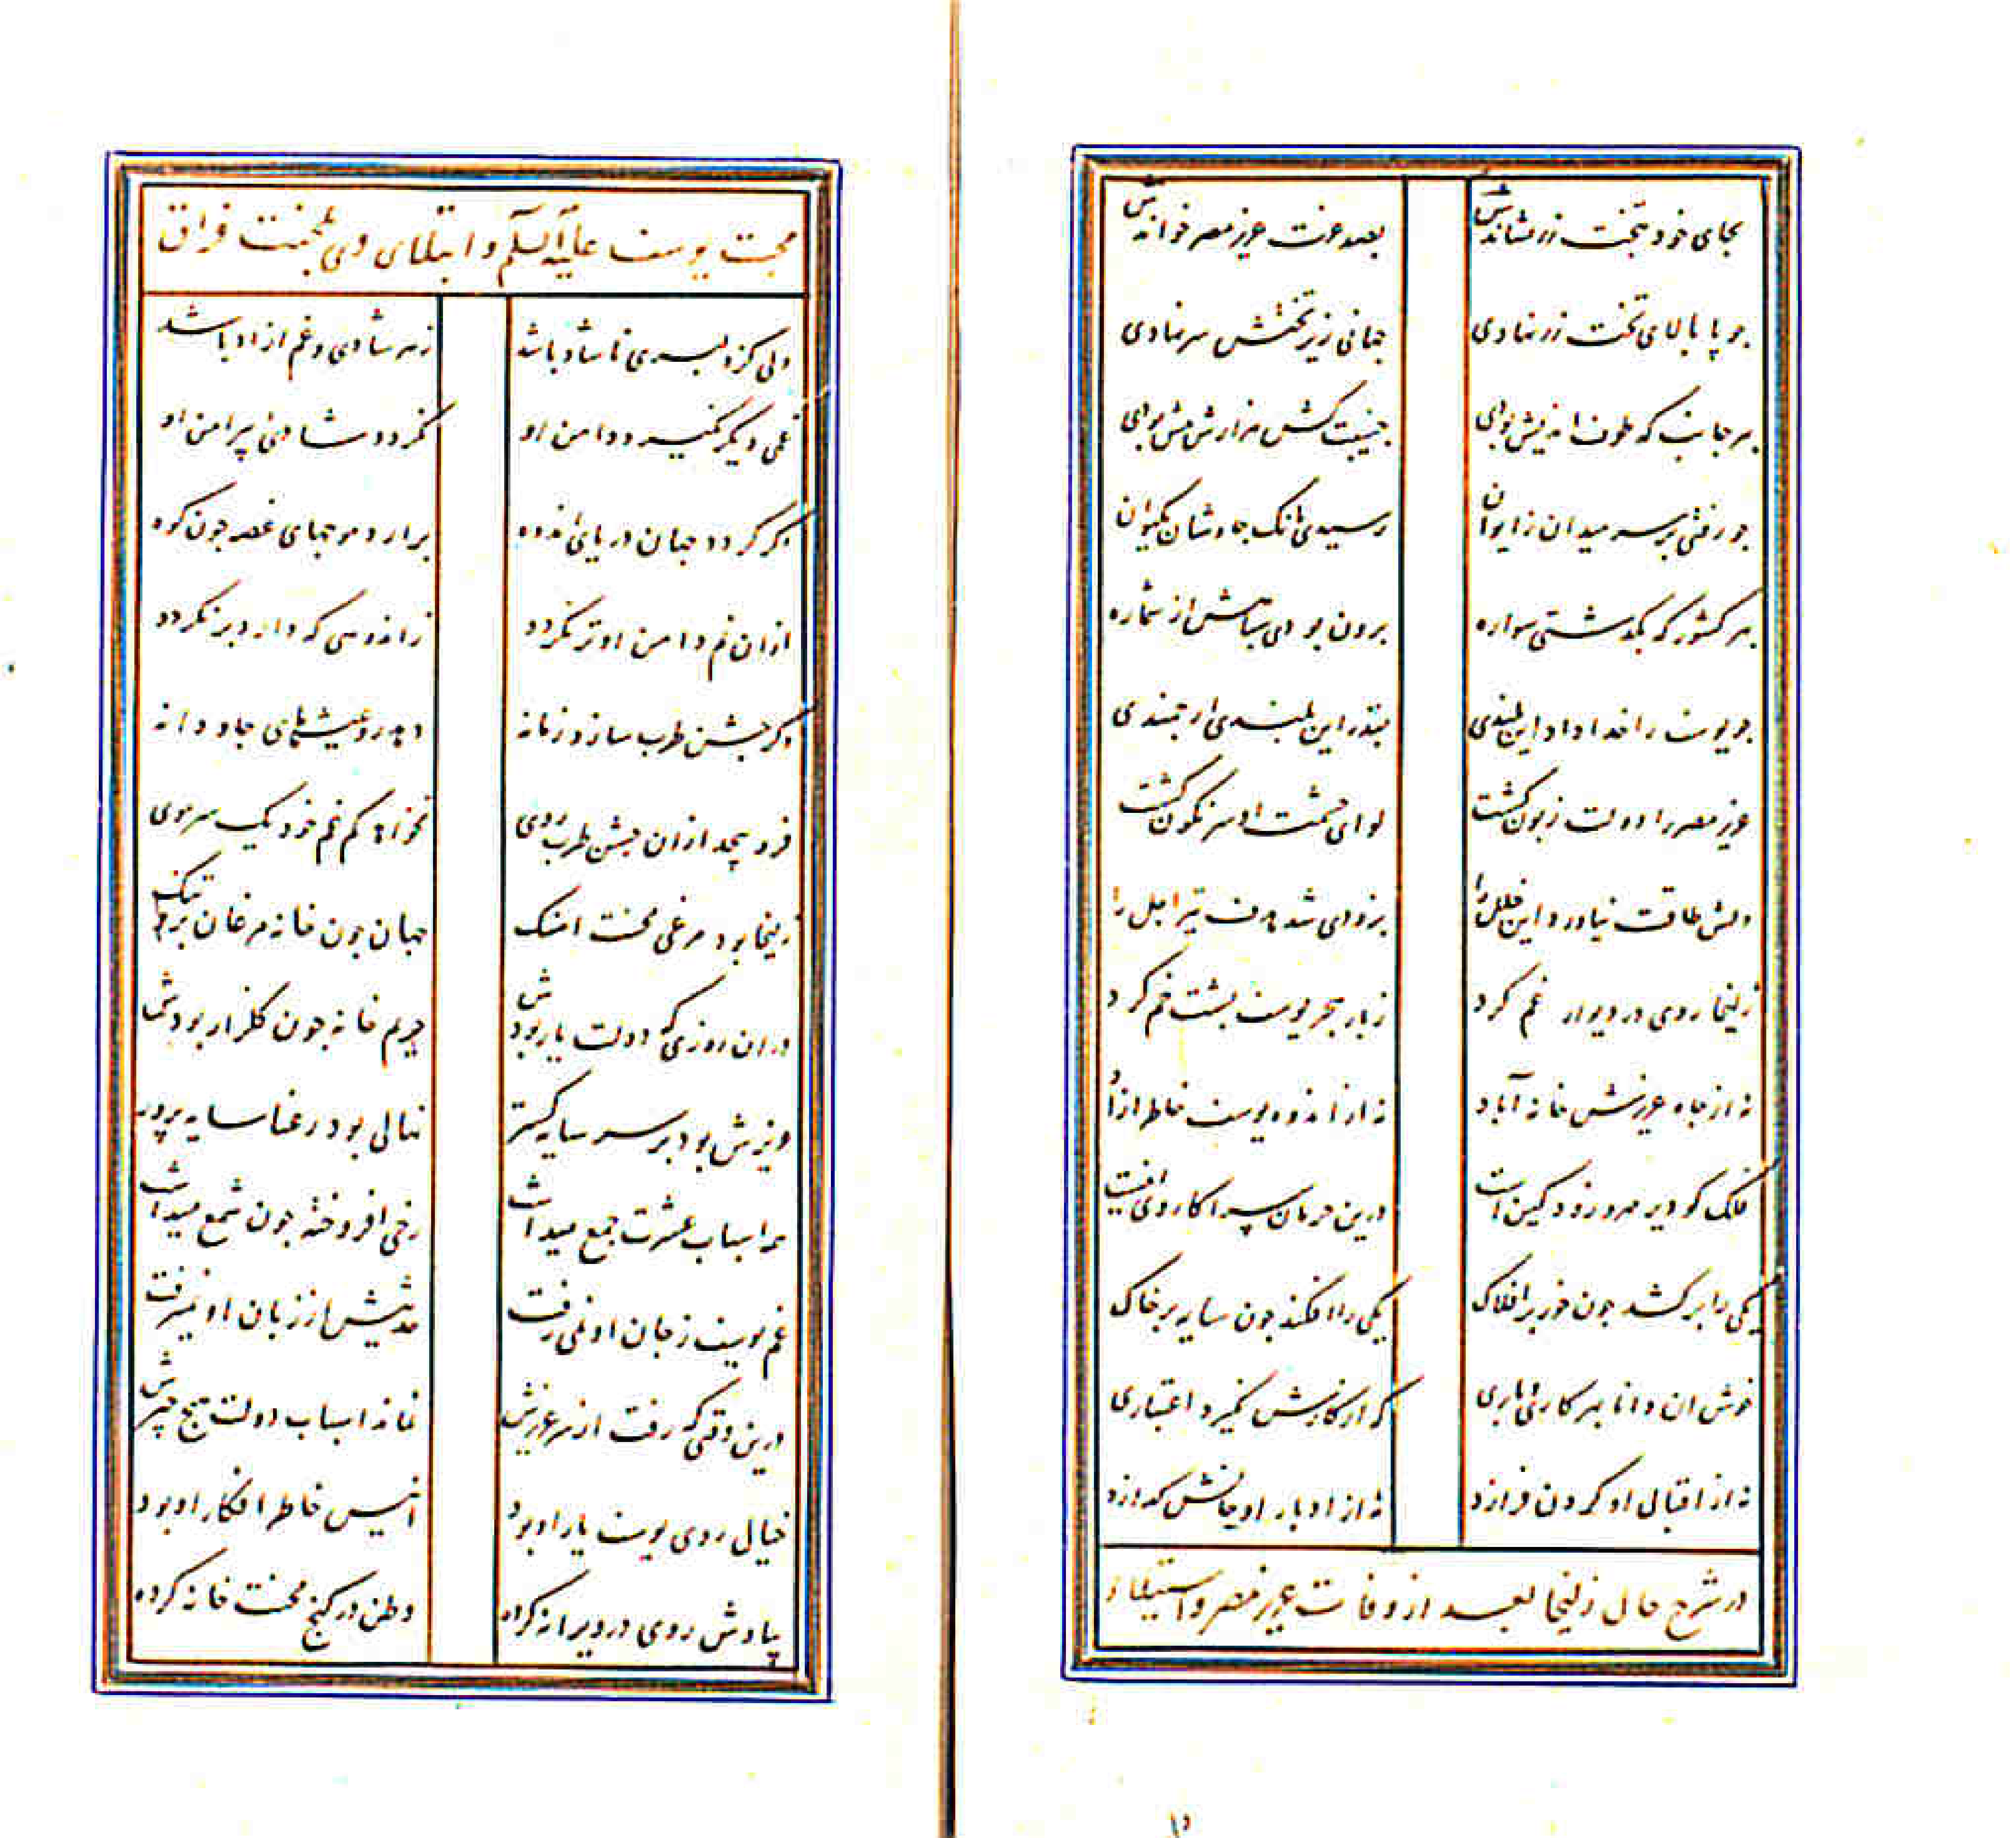 بجای خود بتخت زر نشاندش بصد عزت عزیز مصر خواندش
چو پا بالای تخت زر نهادی جهانی زیر تختش سر نهادی
بهر جانب که طوف اندیش بودی جنیبت کش هزارش بیش بودی
چو رفتی بر سر میدان ز ایوان رسیدی بانک چاوشان بکیوان
بهر کشور که بگذشتی سواره برون بودی سپاهش از شماره
چو یوسف را خدا داد این بلندی بقدر این بلندی ارجمندی
عزیز مصر را دولت زبون گشت لوای حشمت او سرنگون گشت
دلش طاقت نیاورد این خلل را بزودی شد هدف تیر اجل را
زلیخا روی در دیوار غم کرد ز بار هجر یوسف پشت خم کرد
نه از جاه عزیزش خانه آباد نه از اندوه یوسف خاطر آزاد
فلک کو دیر مهر و زود کین است درین حرمان سرا کار وی این است
یکی را برکشد چون خور بر افلاک یکی را افکند چون سایه بر خاک
خوش ان دانا بهر کاری و باری که از کارش نگیرد اعتباری
نه از اقبال او گردن فرازد نه از ادبار او جانش گدازد
در شرح حال زلیخا بعد از وفات عزیز مصر و استیلای
محبت یوسف علیه السلم و ابتلای وی بمحنت فراق
دلی کز دلبری ناشاد باشد ز هر شادی و غم ازاد باشد
غمی دیگر نگیرد دامن او نگردد شادئی پیرامن او
اگر گردد جهان دریای اندوه برارد موجهای غصه چون کوه
ازان نم دامن او تر نگردد ز اندوهی که دارد برنگردد
وگر جشن طرب سازد زمانه دهد رو عیشهای جاودانه
فرو پیچد ازان جشن طرب روی نخواهد کم غم خود یک سر موی
زلیخا بود مرغی محنت اهنگ جهان چون خانه مرغان برو تنگ
دران روزی که دولت یار بودش حریم خانه چون گلزار بودش
عزیزش بود بر سر سایه گستر نهالی بود رعنا سایه پرور
همه اسباب عشرت جمع میداشت رخی افروخته چون شمع میداشت
غم یوسف ز جان او نمی رفت حدیثش از زبان او نمیرفت
درین وقتی که رفت از سر عزیزش نماند اسباب دولت هیچ چیزش
خیال روی یوسف یار او بود انیس خاطر افکار او بود
بیادش روی در ویرانه کرده وطن در کنج محنت خانه کرده